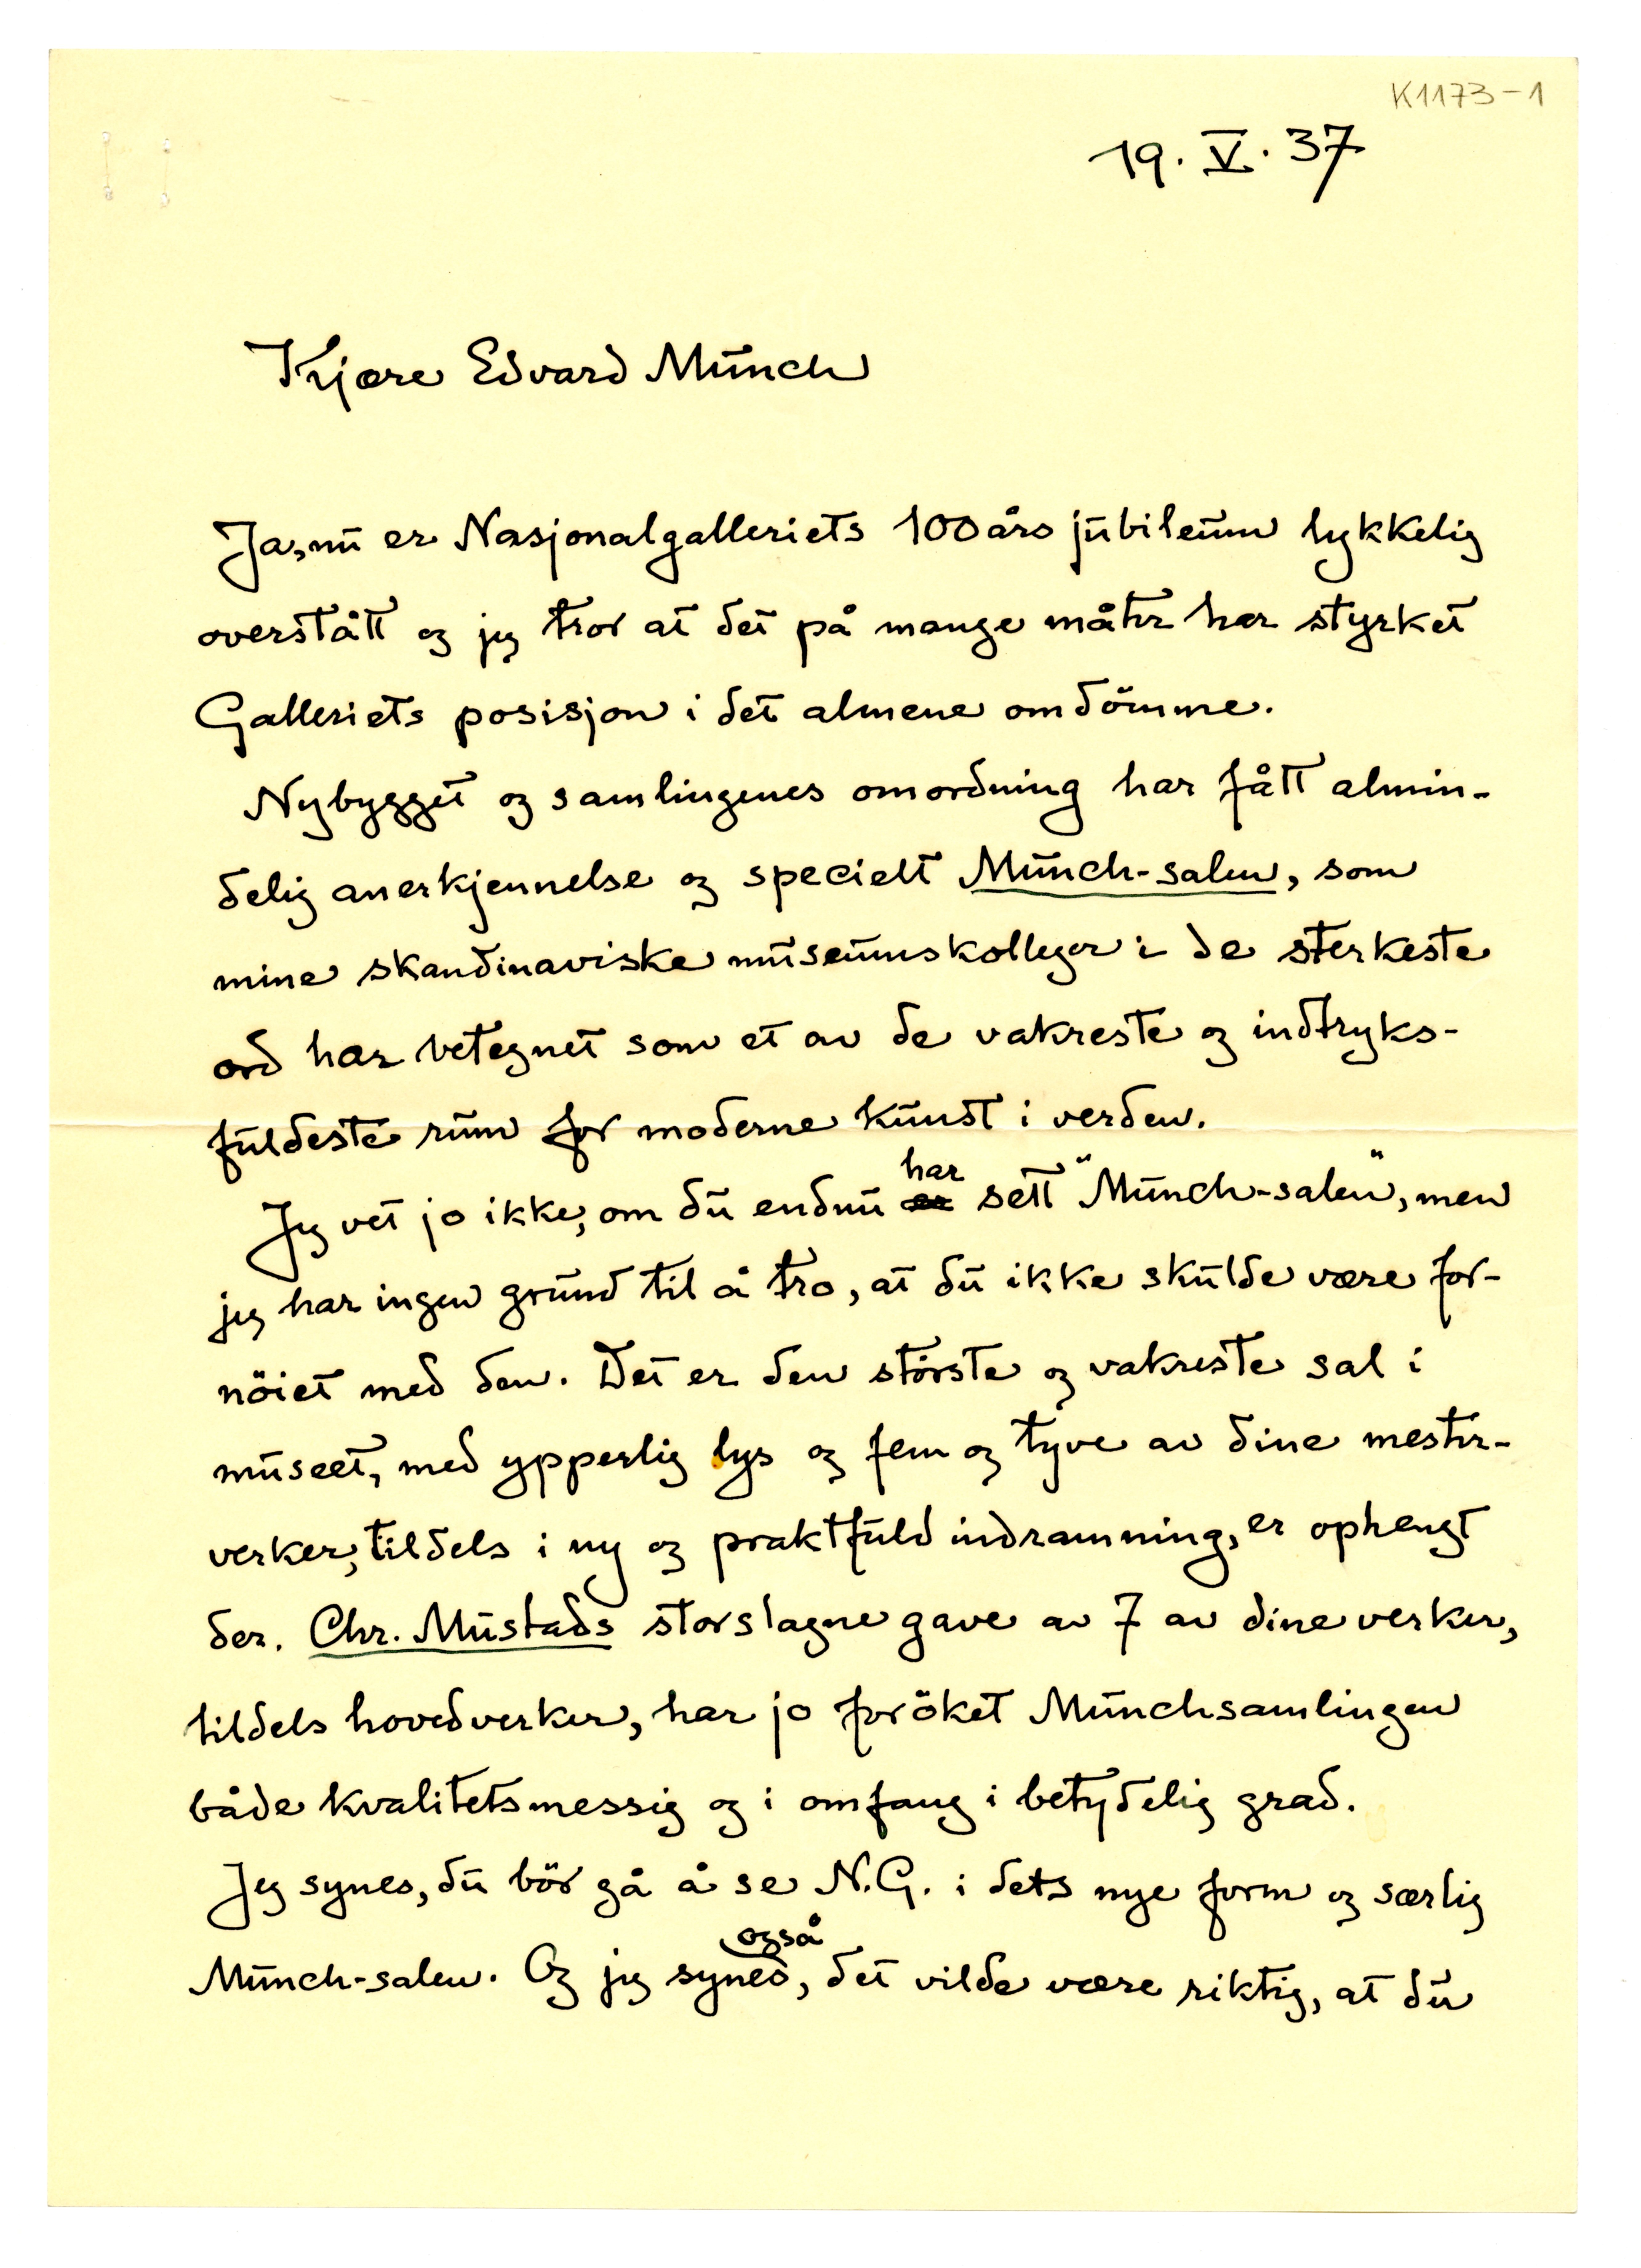 K1173-1
19. V. 37
Kjære Edvard Munch
Ja, nu er Nasjonalgalleriets 100 års jubileum lykkelig
overstått og jeg tror at det på mange måter har styrket
Galleriets posisjon i det almene omdömme.
Nybygget og samlingenes omordning har fått almin-
delig anerkjennelse og specielt Munch-salen, som
mine skandinaviske museumskolleger i de sterkeste
ord har betegnet som et av de vakreste og indtryks-
fuldeste rum for moderne kunst i verden.
Jeg vet jo ikke, om du endnu er har sett "Munch-salen", men
jeg har ingen grund til å tro, at du ikke skulde være for-
nöiet med den. Det er den störste og vakreste sal i
museet, med ypperlig lys og fem og tyve av dine mester-
verker, tildels i ny og praktfuld indramning, er ophengt
der. Chr. Mustads storslagne gave av 7 av dine verker,
tildels hovedverker, har jo foröket Munchsamlingen
både kvalitetsmessig og i omfang i betydelig grad.
Jeg synes, du bör gå å se N.G. i dets nye form og særlig
Munch-salen. Og jeg synes også, det vilde være riktig, at du